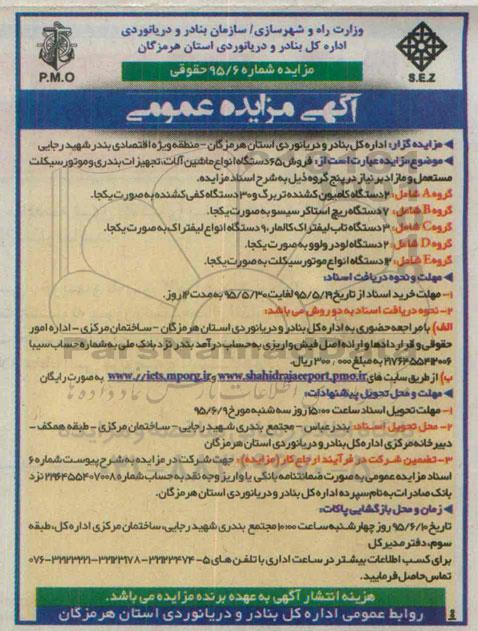 وزارت راه و شهرسازی/ سازمان بنادر و دریانوردی
اداره کل بنادر و دریانوردی استان هرمزگان
P.M.O
S.E.Z
مزایده شماره ۹۵/۶ حقوقی
آگهی مزایده عمومی
مزایده گزار: اداره کل بنادر و دریانوردی استان هرمزگان - منطقه ویژه اقتصادی بندر شهید رجایی
موضوع مزایده عبارت است از: فروش ۶۵ دستگاه انواع ماشین آلات، تجهیزات بندری و موتورسیکلت
مستعمل و مازاد بر نیاز در پنج گروه ذیل به شرح اسناد مزایده.
گروه A شامل: ۲ دستگاه کامیون کشنده تربرگ و ۳۰ دستگاه کفی کشنده به صورت یکجا.
گروه B شامل: ۷ دستگاه ریچ استاکر سیسو به صورت یکجا.
گروه C شامل: ۳ دستگاه تاپ لیفتراک کالمار، ۹ دستگاه انواع لیفتراک به صورت یکجا.
گروه D شامل: ۲ دستگاه لودر ولوو به صورت یکجا.
گروه E شامل: ۱۲ دستگاه انواع موتورسیکلت به صورت یکجا.
مهلت و نحوه دریافت اسناد:
۱- مهلت خرید اسناد از تاریخ ۹۵/۵/۱۹ لغایت ۹۵/۵/۳۰ به مدت ۱۲ روز.
۲- نحوه دریافت اسناد به دو روش می باشد:
الف) با مراجعه حضوری به اداره کل بنادر و دریانوردی استان هرمزگان - ساختمان مرکزی - اداره امور
حقوقی و قراردادها و ارائه اصل فیش واریزی به حساب درآمد بندر نزد بانک ملی به شماره حساب سیبا
به مبلغ ۳۰۰,۰۰۰ ریال.
ب) از طریق سایت های www.shahidrajaeeport.pmo.ir و http://iets.mporg.ir به صورت رایگان
مهلت و محل تحویل پیشنهادات:
۱- مهلت تحویل اسناد ساعت ۱۵:۰۰ روز سه شنبه مورخ ۹۵/۶/۹
۲- محل تحویل اسناد: بندرعباس - مجتمع بندری شهید رجایی - ساختمان مرکزی - طبقه همکف -
دبیرخانه مرکزی اداره کل بنادر و دریانوردی استان هرمزگان
۳- تضمین شرکت در فرآیند ارجاع کار (مزایده): جهت شرکت در مزایده به شرح پیوست شماره ۶
اسناد مزایده عمومی به صورت ضمانتنامه بانکی یا واریز وجه نقد به حساب شماره ۲۲۶۴۵۵۴۰۷۰۰۸ نزد
بانک صادرات به نام سپرده اداره کل بنادر و دریانوردی استان هرمزگان.
زمان و محل بازگشایی پاکات:
تاریخ ۹۵/۶/۱۰ روز چهارشنبه ساعت ۱۰:۰۰ مجتمع بندری شهید رجایی، ساختمان مرکزی اداره کل، طبقه
سوم، دفتر مدیر کل
برای کسب اطلاعات بیشتر در ساعت اداری با تلفن های ۵-۳۲۱۲۳۴۷۴-۳۲۱۲۳۱۷۸-۳۲۱۲۳۲۲۱-۰۷۶
تماس حاصل فرمایید.
هزینه انتشار آگهی به عهده برنده مزایده می باشد.
روابط عمومی اداره کل بنادر و دریانوردی استان هرمزگان